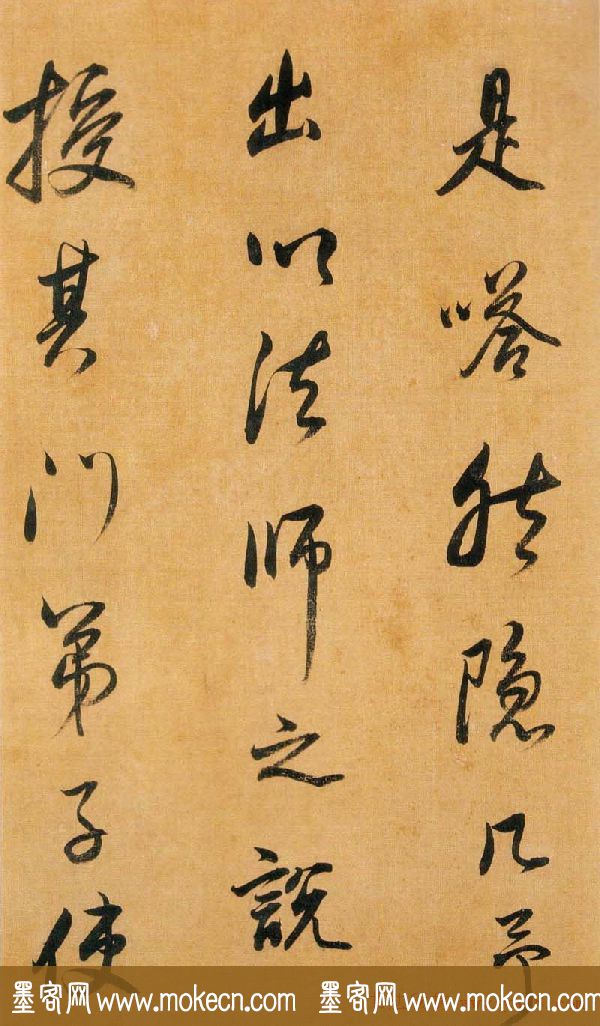 是嗒然隱几予
出以法師之說
授其門弟子使
墨客网 www.mokecn.com 墨客网 www.mokecn.com